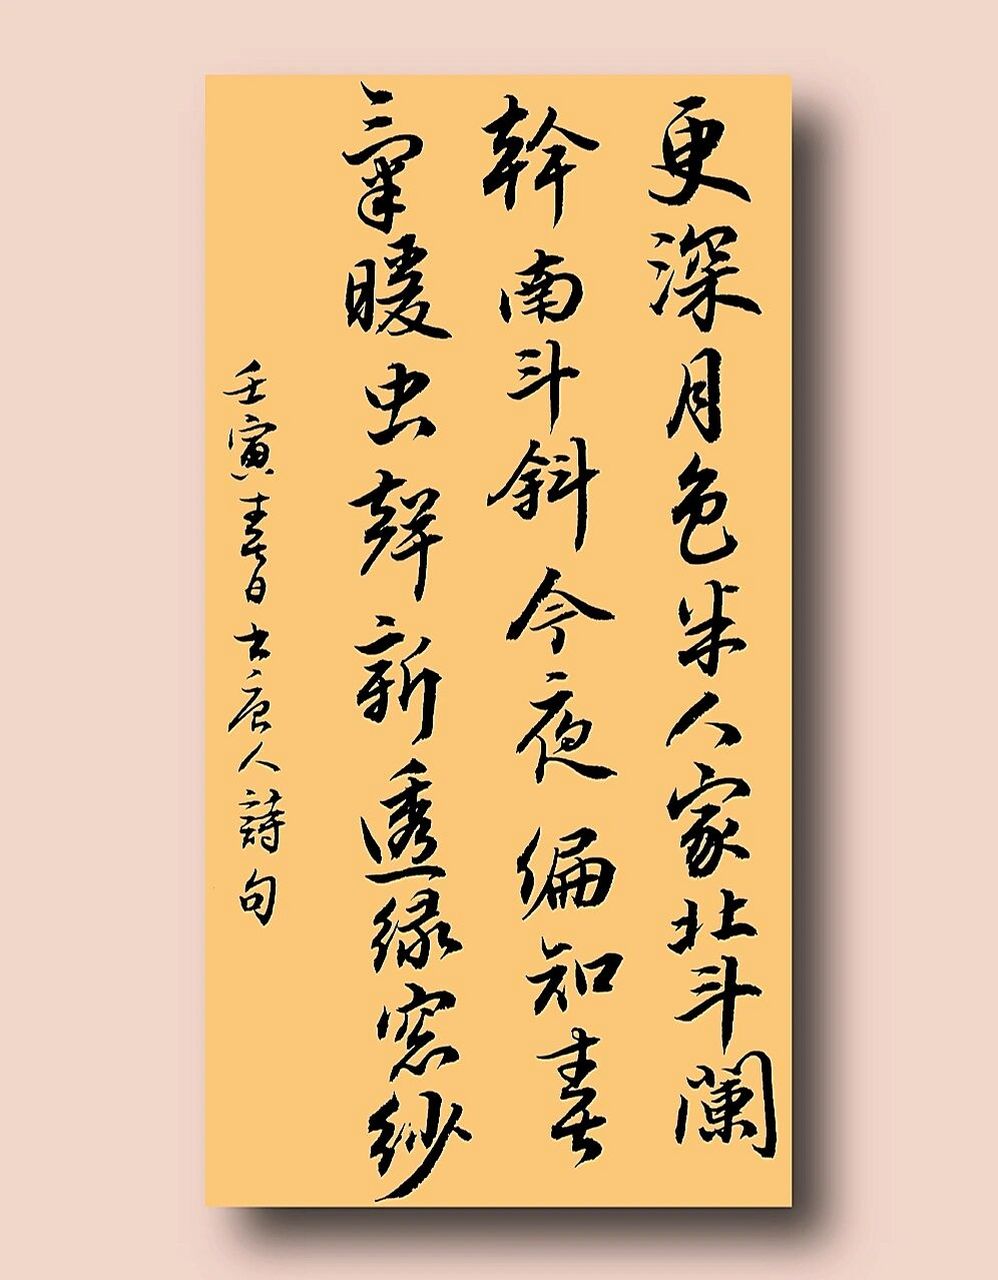 更深月色半人家北斗闌
幹南斗斜今夜偏知春
氣暖虫聲新透緑窓紗
壬寅春日唐人詩句